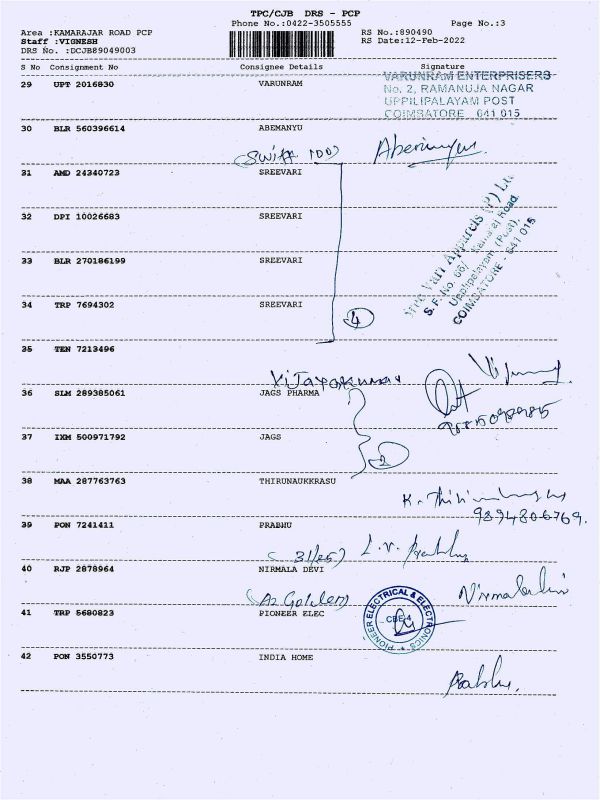 TPC/CJB DRS - PCP
Phone No.:0422-3505555 Page No.:3
Area :KAMARAJAR ROAD PCP RS No.:890490
Staff :VIGNESH RS Date:12-Feb-2022
DRS No. :DCJB89049003
S No Consignment No Consignee Details Signature
29 UPT 2016830 VARUNRAM
VARUNRAM ENTERPRISERS
No. 2, RAMANUJA NAGAR
UPPILIPALAYAM POST
COIMBATORE 641 015
30 BLR 560396614 ABEMANYU
31 AMD 24340723 SREEVARI
32 DPI 10026683 SREEVARI
Apparels (P) Ltd
S.F. No. 66/ Kamaraj Road
Upplipalayam (Post),
COIMBATORE - 641 015
33 BLR 270186199 SREEVARI
34 TRP 7694302 SREEVARI
4
35 TEN 7213496
Vijayakumar
36 SLM 289385061 JAGS PHARMA
37 IXM 500971792 JAGS
2
38 MAA 287763763 THIRUNAUKKRASU
9894806769.
39 PON 7241411 PRABHU
(31/es)
40 RJP 2878964 NIRMALA DEVI
(Az Golden)
41 TRP 5680823 PIONEER ELEC
PIONEER ELECTRICAL & ELECTRONICS
CBE-4
42 PON 3550773 INDIA HOME